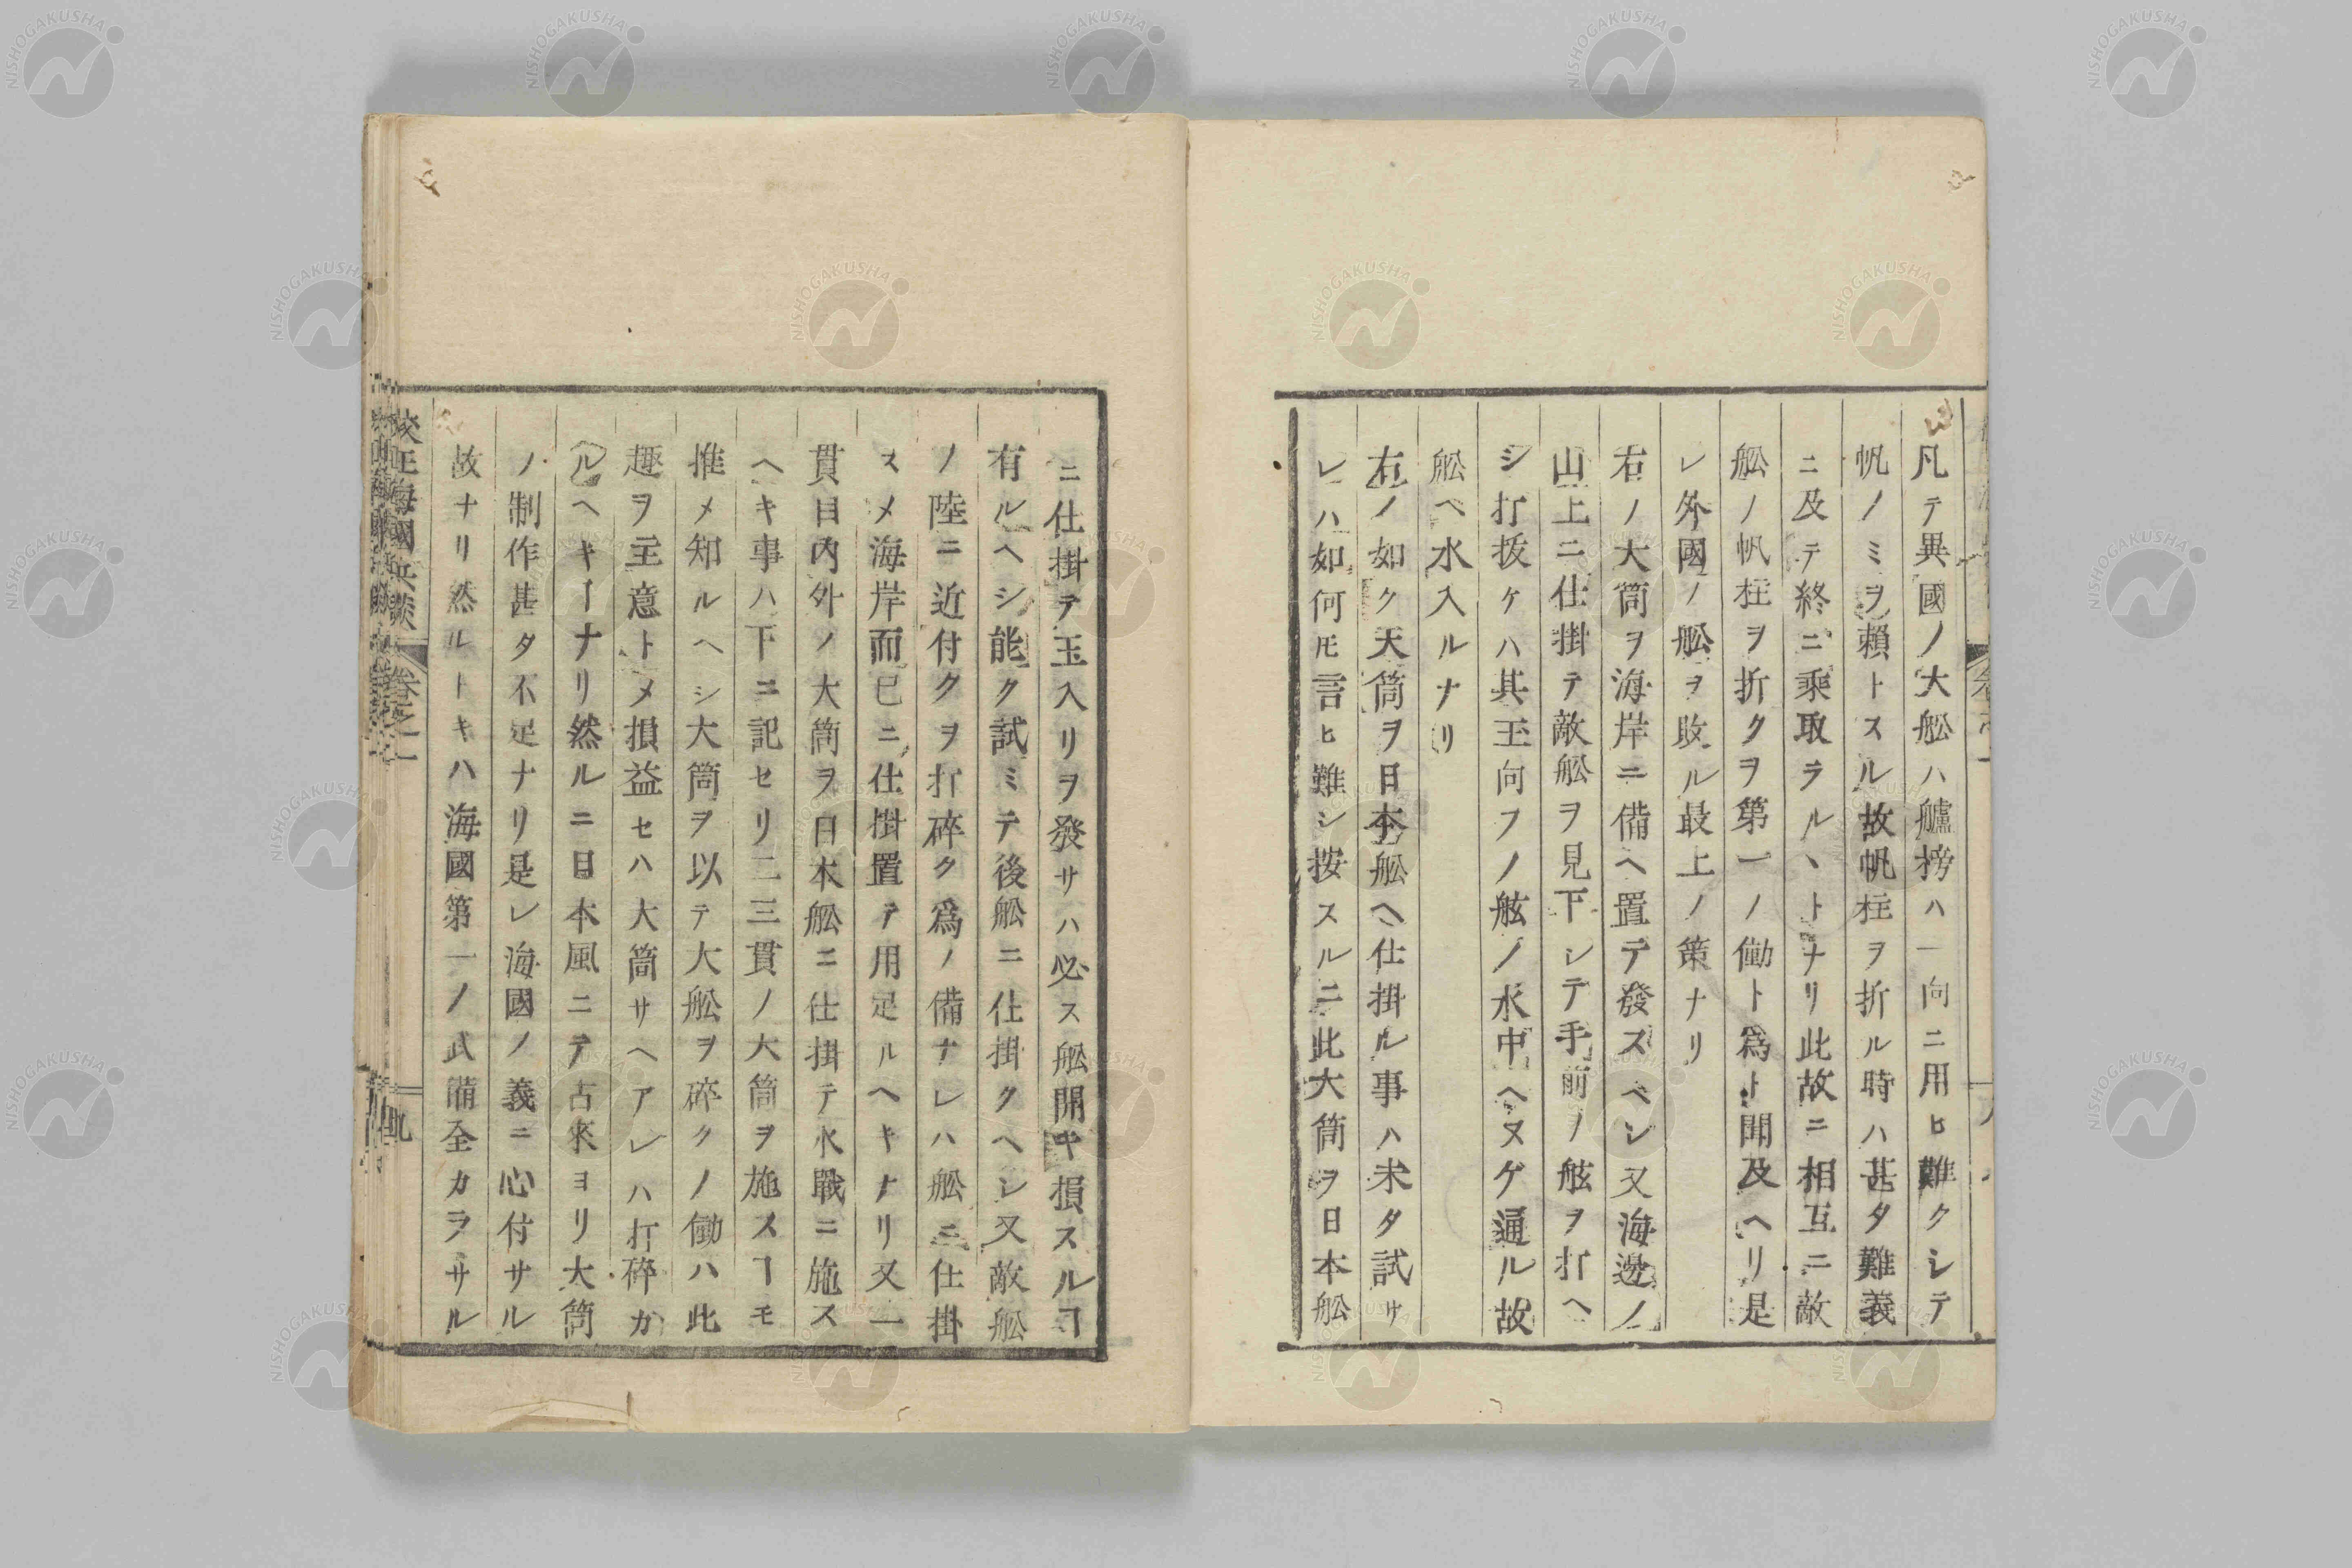 凡テ異國ノ大舩ハ艫榜ハ一向ニ用ヒ難クシテ
帆ノミヲ頼トスル故帆柱ヲ折ル時ハ甚タ難義
ニ及テ終ニ乗取ラルヽトナリ此故ニ相互ニ敵
舩ノ帆柱ヲ折クヲ第一ノ働ト爲ト聞及ヘリ是
レ外國ノ舩ヲ敗ル最上ノ策ナリ
右ノ大筒ヲ海岸ニ備ヘ置テ發スベシ又海邊ノ
山上ニ仕掛テ敵舩ヲ見下シテ手前ノ舷ヲ打ヘ
シ打拔ケハ其玉向フノ舷ノ水中ヘヌゲ通ル故
舩ヘ水入ルナリ
右ノ如ク大筒ヲ日本舩ヘ仕掛ル事ハ未タ試サ
レハ如何㠯言ヒ難シ按スルニ此大筒ヲ日本舩
ニ仕掛テ玉入リヲ發サハ必ス舩開キ損スルヿ
有ルヘシ能ク試ミテ後舩ニ仕掛クヘシ又敵舩
ノ陸ニ近付クヲ打碎ク爲ノ備ナレハ舩ニ仕掛
スメ海岸而已ニ仕掛置テ用足ルヘキナリ又一
貫目内外ノ大筒ヲ日本舩ニ仕掛テ水戰ニ施ス
ヘキ事ハ下ニ記セリ二三貫ノ大筒ヲ施スヿモ
推メ知ルヘシ大筒ヲ以テ大舩ヲ碎クノ働ハ此
趣ヲ主意トメ損益セハ大筒サヘアレハ打碎カ
ルヘキヿナリ然ルニ日本風ニテ古來ヨリ大筒
ノ制作甚タ不足ナリ是レ海國ノ義ニ心付サル
故ナリ然ルトキハ海國第一ノ武備全カラサル
校正海國兵談 卷之一 九
NISHOGAKUSHA